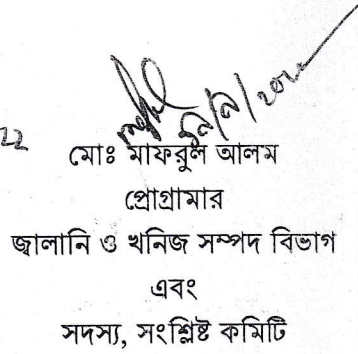 মোঃ মাফরুল আলম
প্রোগ্রামার
জ্বালানি ও খনিজ সম্পদ বিভাগ
এবং
সদস্য, সংশ্লিষ্ট কমিটি